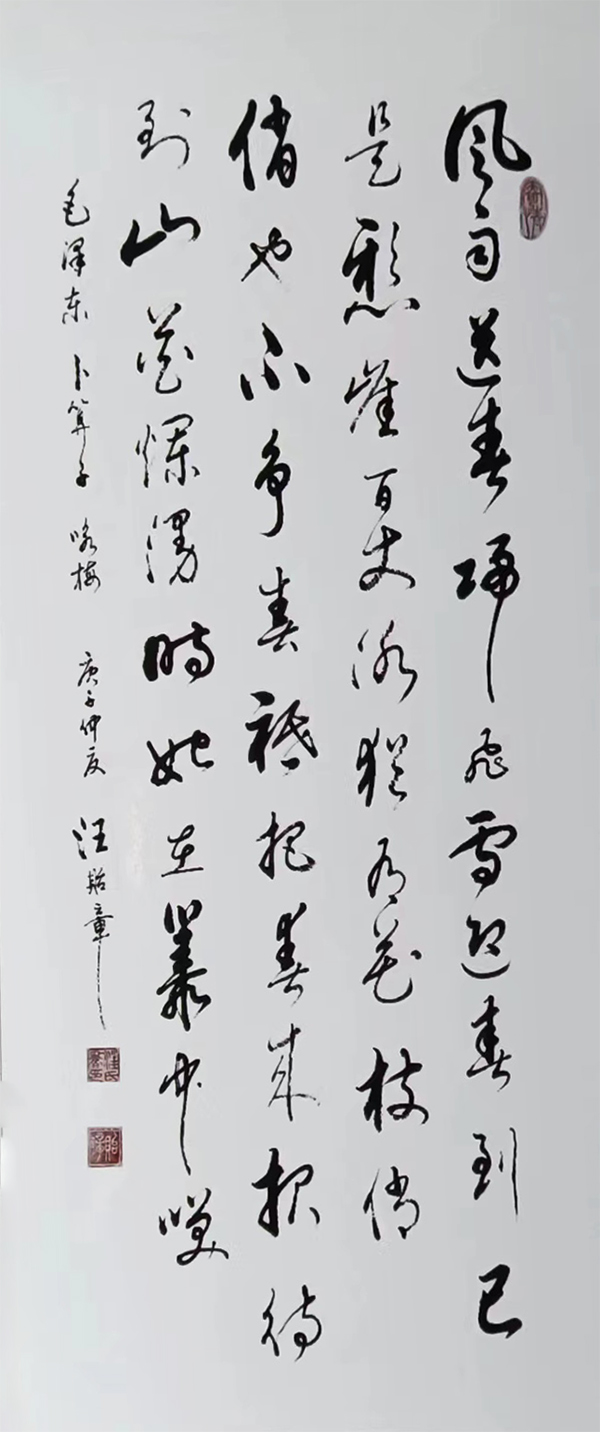 风雨送春歸飞雪迎春到已
是懸崖百丈冰猶有花枝俏
俏也不争春祇把春来报待
到山花爛漫時她在叢中笑
毛泽东 卜算子 咏梅 庚子仲夏 汪贻章